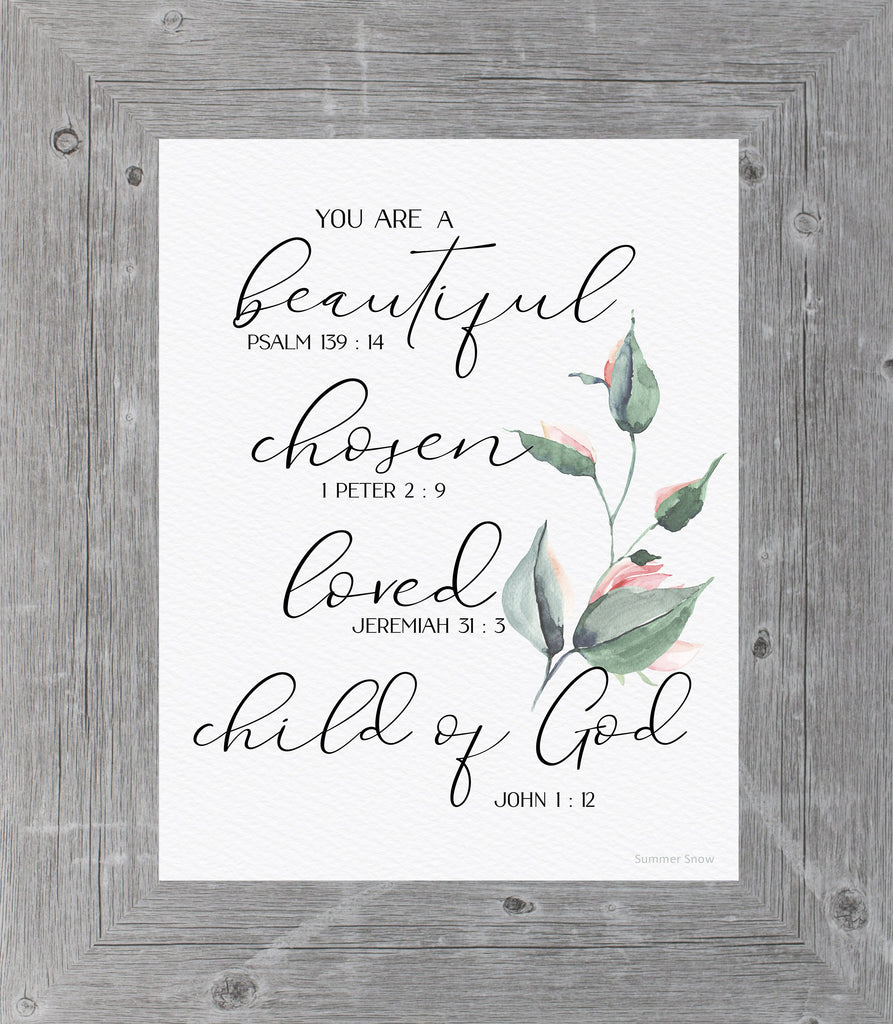 YOU ARE A
beautiful
PSALM 139 : 14
chosen
1 PETER 2 : 9
loved
JEREMIAH 31 : 3
child of God
JOHN 1 : 12
Summer Snow